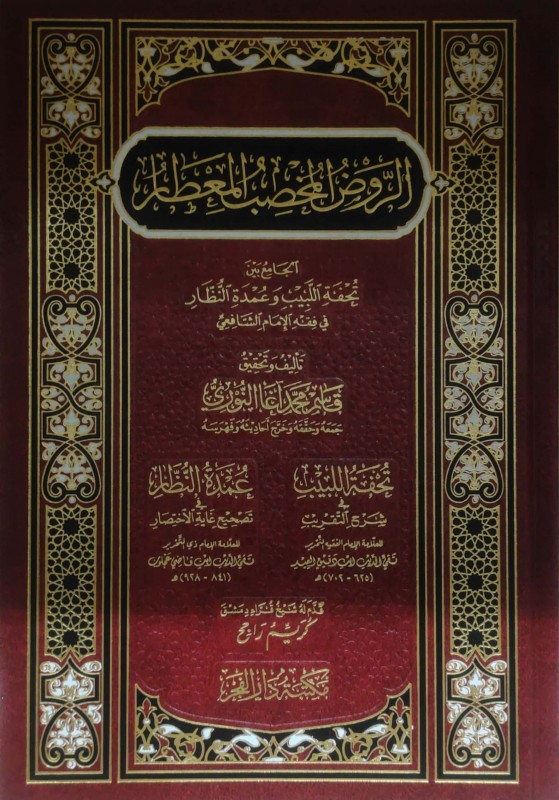 الرَّوْضُ المُخْصِبُ المِعْطَار
الجَامِعُ بَيْنَ
تُحْفَةِ اللَّبِيبِ وَعُمْدَةِ النُّظَّارِ
فِي فِقْهِ الإِمَامِ الشَّافِعِيِّ
تَأْلِيفُ وَتَحْقِيقُ
قَاسِم مُحَمَّد آغَا النُّورِيّ
جَمَعَهُ وَحَقَّقَهُ وَخَرَّجَ أَحَادِيثَهُ وَفَهْرَسَهُ
تُحْفَةُ اللَّبِيبِ
فِي
شَرْحِ التَّقْرِيبِ
للعلامة الإمام الفقيه النحرير
تقي الدين ابن دقيق العيد
(٦٢٥ - ٧٠٢) هـ
عُمْدَةُ النُّظَّارِ
فِي
تَصْحِيحِ غَايَةِ الاخْتِصَارِ
للعلامة الإمام ذي التحرير
تقي الدين ابن قاضي عجلون
(٨٤١ - ٩٢٨) هـ
قَدَّمَ لَهُ شَيْخُ قُرَّاءِ دِمَشْقَ
كُرَيِّم رَاجِح
مَكْتَبَةُ دَارِ الفَجْرِ